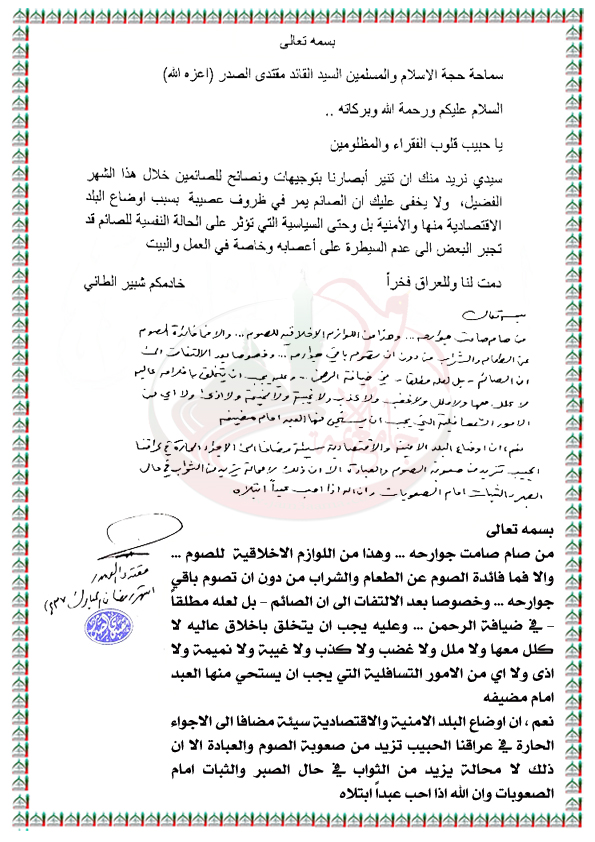 بسمه تعالى
سماحة حجة الاسلام والمسلمين السيد القائد مقتدى الصدر (اعزه الله)
السلام عليكم ورحمة الله وبركاته ..
يا حبيب قلوب الفقراء والمظلومين
سيدي نريد منك ان تنير أبصارنا بتوجيهات ونصائح للصائمين خلال هذا الشهر
الفضيل، ولا يخفى عليك ان الصائم يمر في ظروف عصيبة بسبب اوضاع البلد
الاقتصادية منها والأمنية بل وحتى السياسية التي تؤثر على الحالة النفسية للصائم قد
تجبر البعض الى عدم السيطرة على أعصابه وخاصة في العمل والبيت
دمت لنا وللعراق فخراً خادمكم شبير الطائي
بسمه تعالى
من صام صامت جوارحه ... وهذا من اللوازم الاخلاقية للصوم ... والا فما فائدة الصوم
عن الطعام والشراب من دون ان تصوم باقي جوارحه ... وخصوصا بعد الالتفات الى
ان الصائم - بل لعله مطلقا - في ضيافة الرحمن .. وعليه يجب ان يتخلق باخلاق عاليه
لا كلل معها ولا ملل ولا غضب ولا كذب ولا غيبة ولا نميمة ولا اذى ولا اي من
الامور التسافلية التي يجب ان يستحي منها العبد امام مضيفه
نعم، ان اوضاع البلد الامنية والاقتصادية سيئة مضافا الى الاجواء الحارة في عراقنا
الحبيب تزيد من صعوبة الصوم والعبادة الا ان ذلك لا محالة يزيد من الثواب في حال
الصبر والثبات امام الصعوبات وان الله اذا احب عبداً ابتلاه
مقتدى الصدر
بسمه تعالى
من صام صامت جوارحه ... وهذا من اللوازم الاخلاقية للصوم ...
والا فما فائدة الصوم عن الطعام والشراب من دون ان تصوم باقي
جوارحه ... وخصوصا بعد الالتفات الى ان الصائم - بل لعله مطلقاً
- في ضيافة الرحمن ... وعليه يجب ان يتخلق باخلاق عاليه لا
كلل معها ولا ملل ولا غضب ولا كذب ولا غيبة ولا نميمة ولا
اذى ولا اي من الامور التسافلية التي يجب ان يستحي منها العبد
امام مضيفه
نعم ، ان اوضاع البلد الامنية والاقتصادية سيئة مضافا الى الاجواء
الحارة في عراقنا الحبيب تزيد من صعوبة الصوم والعبادة الا ان
ذلك لا محالة يزيد من الثواب في حال الصبر والثبات امام
الصعوبات وان الله اذا احب عبداً ابتلاه